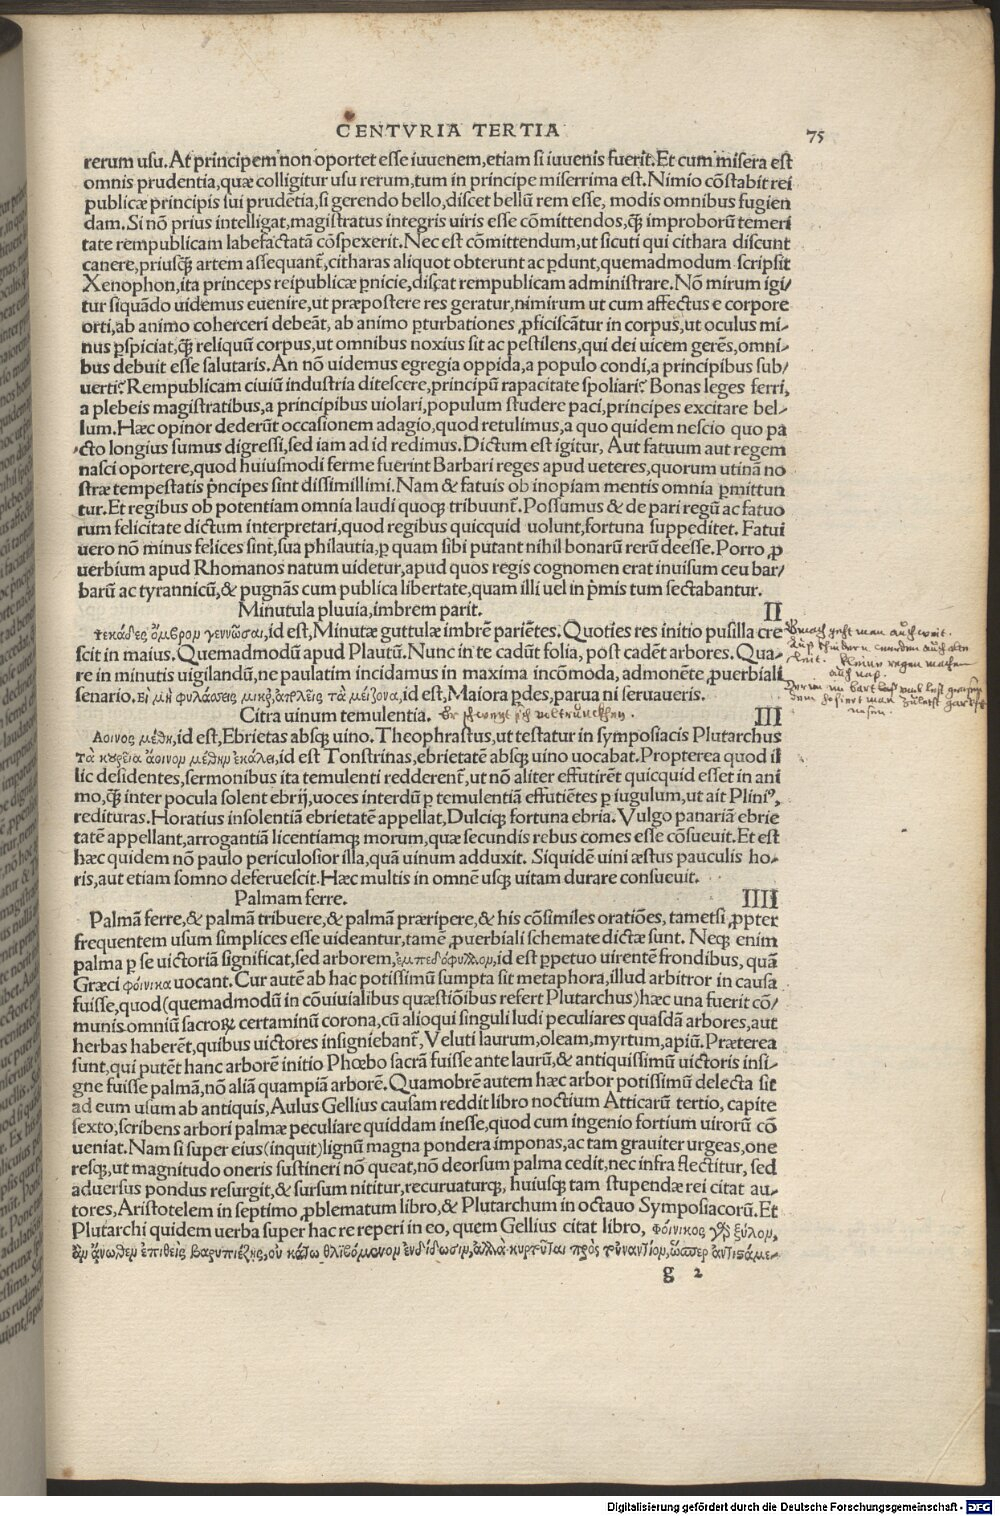 CENTVRIA TERTIA 75
rerum usu. At principem non oportet esse iuuenem, etiam si iuuenis fuerit. Et cum misera est
omnis prudentia, quæ colligitur usu rerum, tum in principe miserrima est. Nimio cõstabit rei
publicæ principis sui prudẽtia, si gerendo bello, discet bellũ rem esse, modis omnibus fugien
dam. Si nõ prius intelligat, magistratus integris uiris esse cõmittendos, q̃ improborũ temeri
tate rempublicam labefactatã cõspexerit. Nec est cõmittendum, ut sicuti qui cithara discunt
canere, priusq̃ artem assequant̃, citharas aliquot obterunt ac ꝑdunt, quemadmodum scripsit
Xenophon, ita princeps reipublicæ ꝑnicie, discat rempublicam administrare. Nõ mirum igi/
tur siquãdo uidemus euenire, ut præpostere res geratur, nimirum ut cum affectus e corpore
orti, ab animo coherceri debeãt, ab animo ꝑturbationes ꝓficiscãtur in corpus, ut oculus mi-
nus ꝑspiciat, q̃ reliquũ corpus, ut omnibus noxius sit ac pestilens, qui dei uicem gerẽs, omni-
bus debuit esse salutaris. An nõ uidemus egregia oppida, a populo condi, a principibus sub/
uerti? Rempublicam ciuiũ industria ditescere, principũ rapacitate spoliari? Bonas leges ferri,
a plebeis magistratibus, a principibus uiolari, populum studere paci, principes excitare bel-
lum. Hæc opinor dederũt occasionem adagio, quod retulimus, a quo quidem nescio quo pa
cto longius sumus digressi, sed iam ad id redimus. Dictum est igitur, Aut fatuum aut regem
nasci oportere, quod huiusmodi ferme fuerint Barbari reges apud ueteres, quorum utinã no
stræ tempestatis pˀncipes sint dissimillimi. Nam & fatuis ob inopiam mentis omnia ꝑmittun
tur. Et regibus ob potentiam omnia laudi quoq; tribuunt̃. Possumus & de pari regũ ac fatuo
rum felicitate dictum interpretari, quod regibus quicquid uolunt, fortuna suppeditet. Fatui
uero nõ minus felices sint, sua philautia, ꝑ quam sibi putant nihil bonarũ rerũ deesse. Porro ꝓ
uerbium apud Rhomanos natum uidetur, apud quos regis cognomen erat inuisum ceu bar/
barũ ac tyrannicũ, & pugnãs cum publica libertate, quam illi uel in pˀmis tum sectabantur.
Minutula pluuia, imbrem parit. II
ψεκάδες ὄμβρον γεννῶσαι, id est, Minutæ guttulæ imbrẽ pariẽtes. Quoties res initio pusilla cre
scit in maius. Quemadmodũ apud Plautũ. Nunc in te cadũt folia, post cadẽt arbores. Qua-
re in minutis uigilandũ, ne paulatim incidamus in maxima incõmoda, admonẽte ꝓuerbiali
senario. Εἰ μὴ φυλάσσεις μικρ’, ἀπολεῖς τὰ μείζονα, id est, Maiora ꝑdes, parua ni seruaueris.
kleine regen machen
auch nas.
Citra uinum temulentia. III
Ἄοινος μέθη, id est, Ebrietas absq; uino. Theophrastus, ut testatur in symposiacis Plutarchus
τὰ κουρεῖα ἄοινον μέθην ἐκάλει, id est Tonstrinas, ebrietatẽ absq; uino uocabat. Propterea quod il
lic desidentes, sermonibus ita temulenti redderent̃, ut nõ aliter effutirẽt quicquid esset in ani
mo, q̃ inter pocula solent ebrij, uoces interdũ ꝑ temulentiã effutiẽtes ꝑ iugulum, ut ait Pliniꝰ,
redituras. Horatius insolentiã ebrietatẽ appellat, Dulciq; fortuna ebria. Vulgo panariã ebrie
tatẽ appellant, arrogantiã licentiamq; morum, quæ secundis rebus comes esse cõsueuit. Et est
hæc quidem nõ paulo periculosior illa, quã uinum adduxit. Siquidẽ uini æstus pauculis ho-
ris, aut etiam somno deferuescit. Hæc multis in omnẽ usq; uitam durare consueuit.
Palmam ferre. IIII
Palmã ferre, & palmã tribuere, & palmã præripere, & his cõsimiles oratiões, tametsi ꝓpter
frequentem usum simplices esse uideantur, tamẽ ꝓuerbiali schemate dictæ sunt. Neq; enim
palma ꝑ se uictoriã significat, sed arborem, ἐμπεδόφυλλον, id est ꝑpetuo uirentẽ frondibus, quã
Græci φοίνικα uocant. Cur autẽ ab hac potissimũ sumpta sit metaphora, illud arbitror in causa
fuisse, quod (quemadmodũ in cõuiuialibus quæstiõibus refert Plutarchus) hæc una fuerit cõ/
munis omniũ sacroꝝ certaminũ corona, cũ alioqui singuli ludi peculiares quasdã arbores, aut
herbas haberẽt, quibus uictores insigniebant̃, Veluti laurum, oleam, myrtum, apiũ. Præterea
sunt, qui putẽt hanc arborẽ initio Phœbo sacrã fuisse ante laurũ, & antiquissimũ uictoris insi/
gne fuisse palmã, nõ aliã quampiã arborẽ. Quamobrẽ autem hæc arbor potissimũ delecta sit
ad eum usum ab antiquis, Aulus Gellius causam reddit libro noctium Atticarũ tertio, capite
sexto, scribens arbori palmæ peculiare quiddam inesse, quod cum ingenio fortium uirorũ cõ
ueniat. Nam si super eius (inquit) lignũ magna pondera imponas, ac tam grauiter urgeas, one
resq;, ut magnitudo oneris sustineri nõ queat, nõ deorsum palma cedit, nec infra flectitur, sed
aduersus pondus resurgit, & sursum nititur, recuruaturq;, huiusq; tam stupendæ rei citat au-
tores, Aristotelem in septimo ꝓblematum libro, & Plutarchum in octauo Symposiacorũ. Et
Plutarchi quidem uerba super hac re reperi in eo, quem Gellius citat libro, φοίνικος γὰρ ξύλον,
ἂν ἄνωθεν ἐπιθεὶς βάρυ πιέζῃς, οὐ κάτω θλιβόμενον ἐνδίδωσιν, ἀλλὰ κυρτοῦται πρὸς τοὐναντίον, ὥσπερ ἀντιστάμε-
g 2
Digitalisierung gefördert durch die Deutsche Forschungsgemeinschaft - DFG